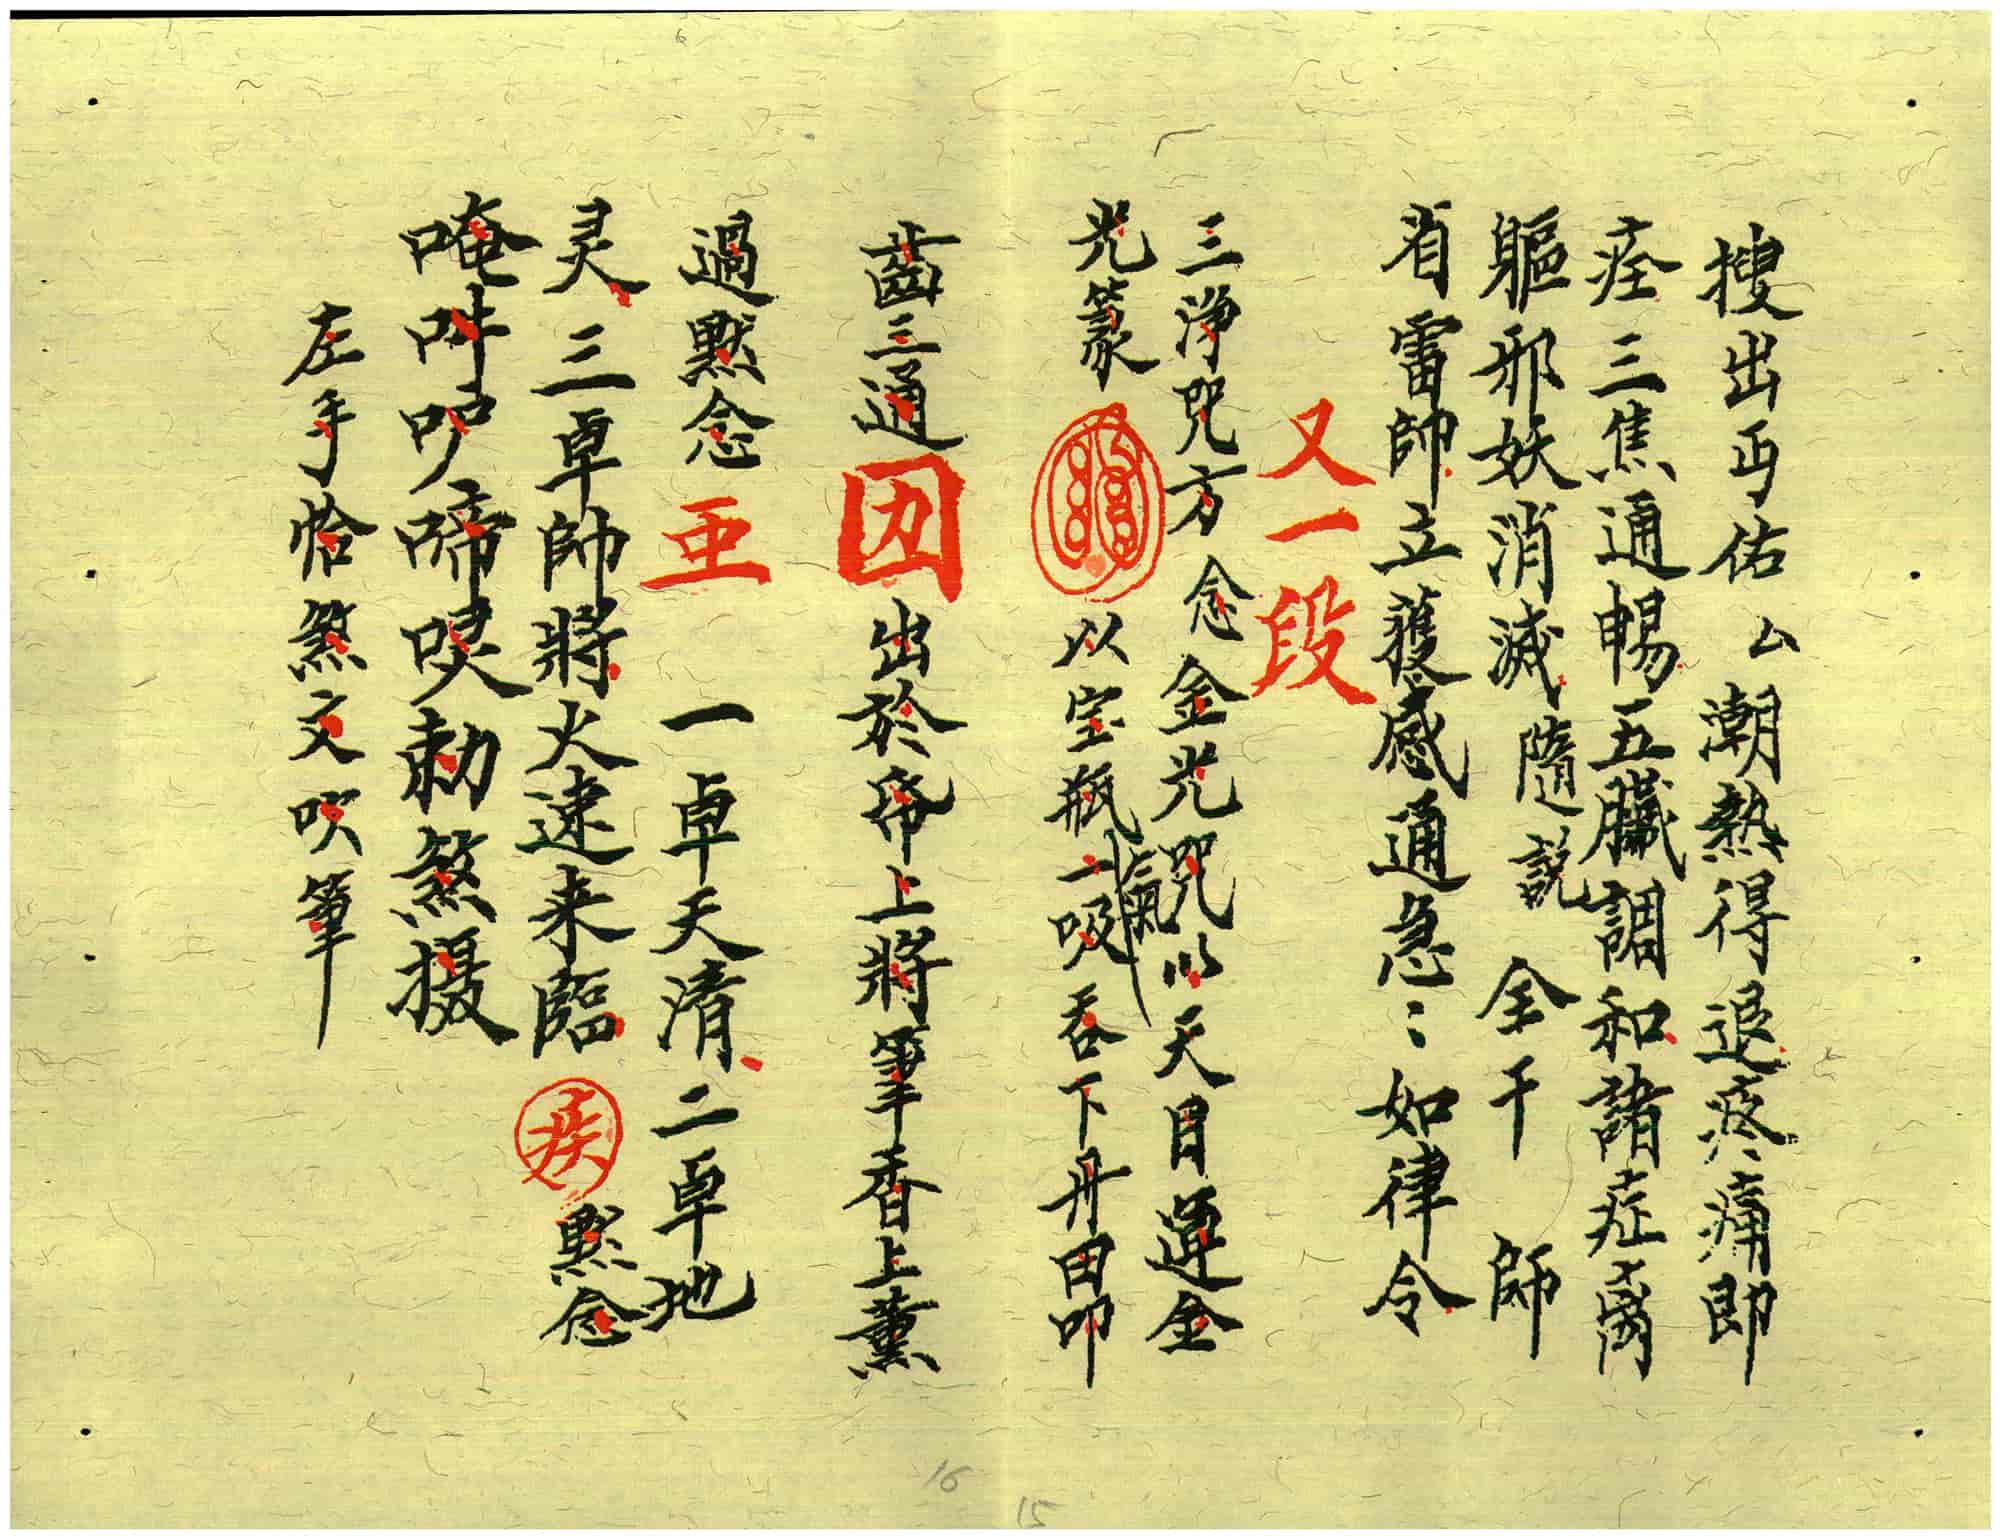 搜出丏佑厶潮熱得退疼痛即
痊三焦通暢五臟調和諸症离
軀邪妖消滅隨說仝千師
省雷帥立蒦感通急〻如律令
又一段
三淨咒方念金光咒以天目運金
光篆以宝瓶一吸氣吞下丹田叩
齒三通囚出於帋上將筆香上薰
過默念亜一卓天清二卓地
灵三卓帥將火速来臨疾默念
唵吽𠰷啼唳勅煞摄
左手恰煞文吹筆
16
15